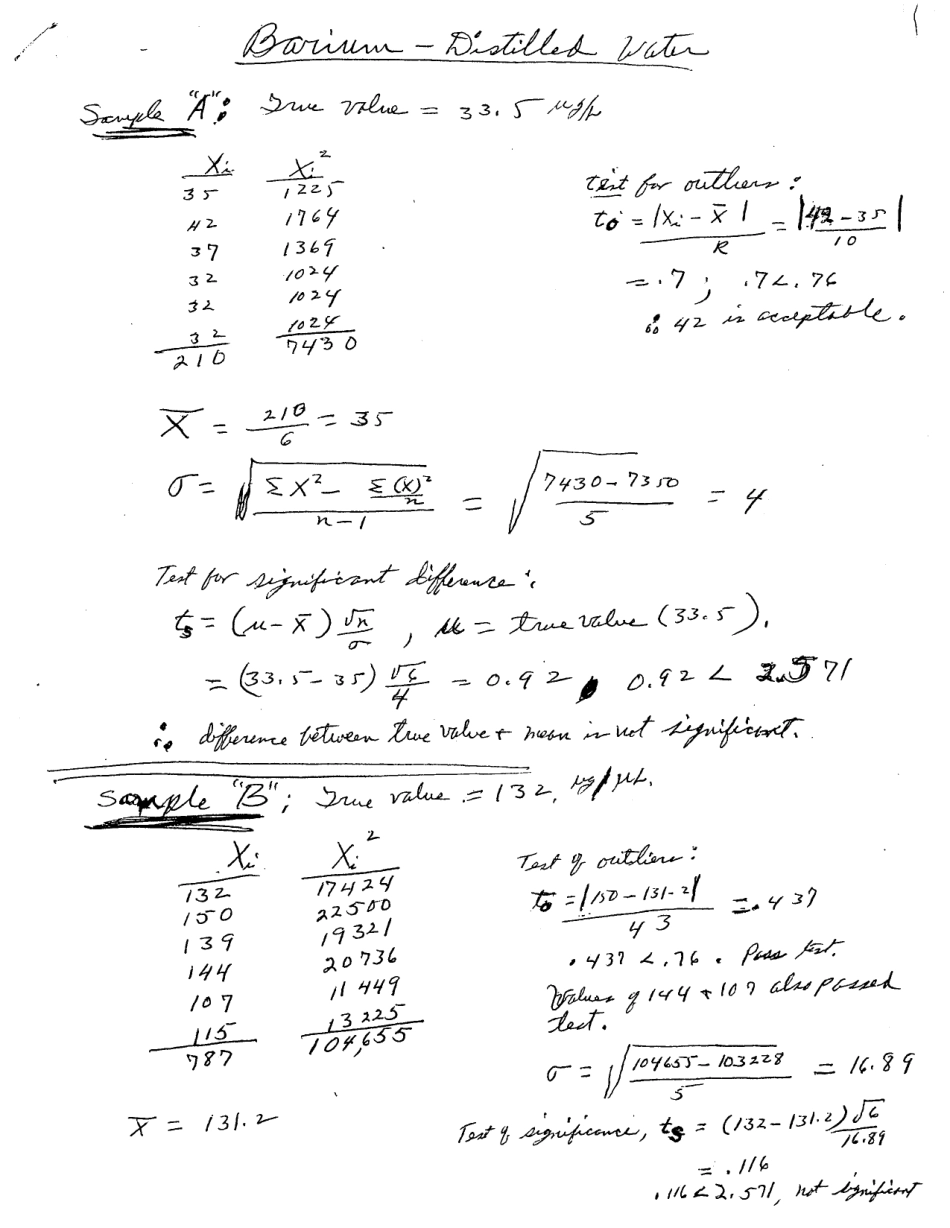 Barium - Distilled Water
Sample "A": True value = 33.5 µg/L
Xi Xi²
35 1225
42 1764
37 1369
32 1024
32 1024
32 1024
210 7430
test for outliers:
to = |Xi - X̄| / R = |42 - 35| / 10
= .7 ; .7 < .76
∴ 42 is acceptable.
X̄ = 210/6 = 35
σ = √((ΣX² - Σ(X)²/n) / (n-1)) = √((7430 - 7350) / 5) = 4
Test for significant difference:
ts = (µ - X̄) √n/σ , µ = true value (33.5).
= (33.5 - 35) √6/4 = 0.92 , 0.92 < 2.571
∴ difference between true value + mean is not significant.
Sample "B"; True value = 132, µg/µL.
Xi Xi²
132 17424
150 22500
139 19321
144 20736
107 11449
115 13225
787 104,655
X̄ = 131.2
Test of outliers:
to = |150 - 131.2| / 43 = .437
.437 < .76. Pass test.
Values of 144 + 107 also passed
test.
σ = √((104655 - 103228) / 5) = 16.89
Test of significance, ts = (132 - 131.2) √6/16.89
= .116
.116 < 2.571, not significant